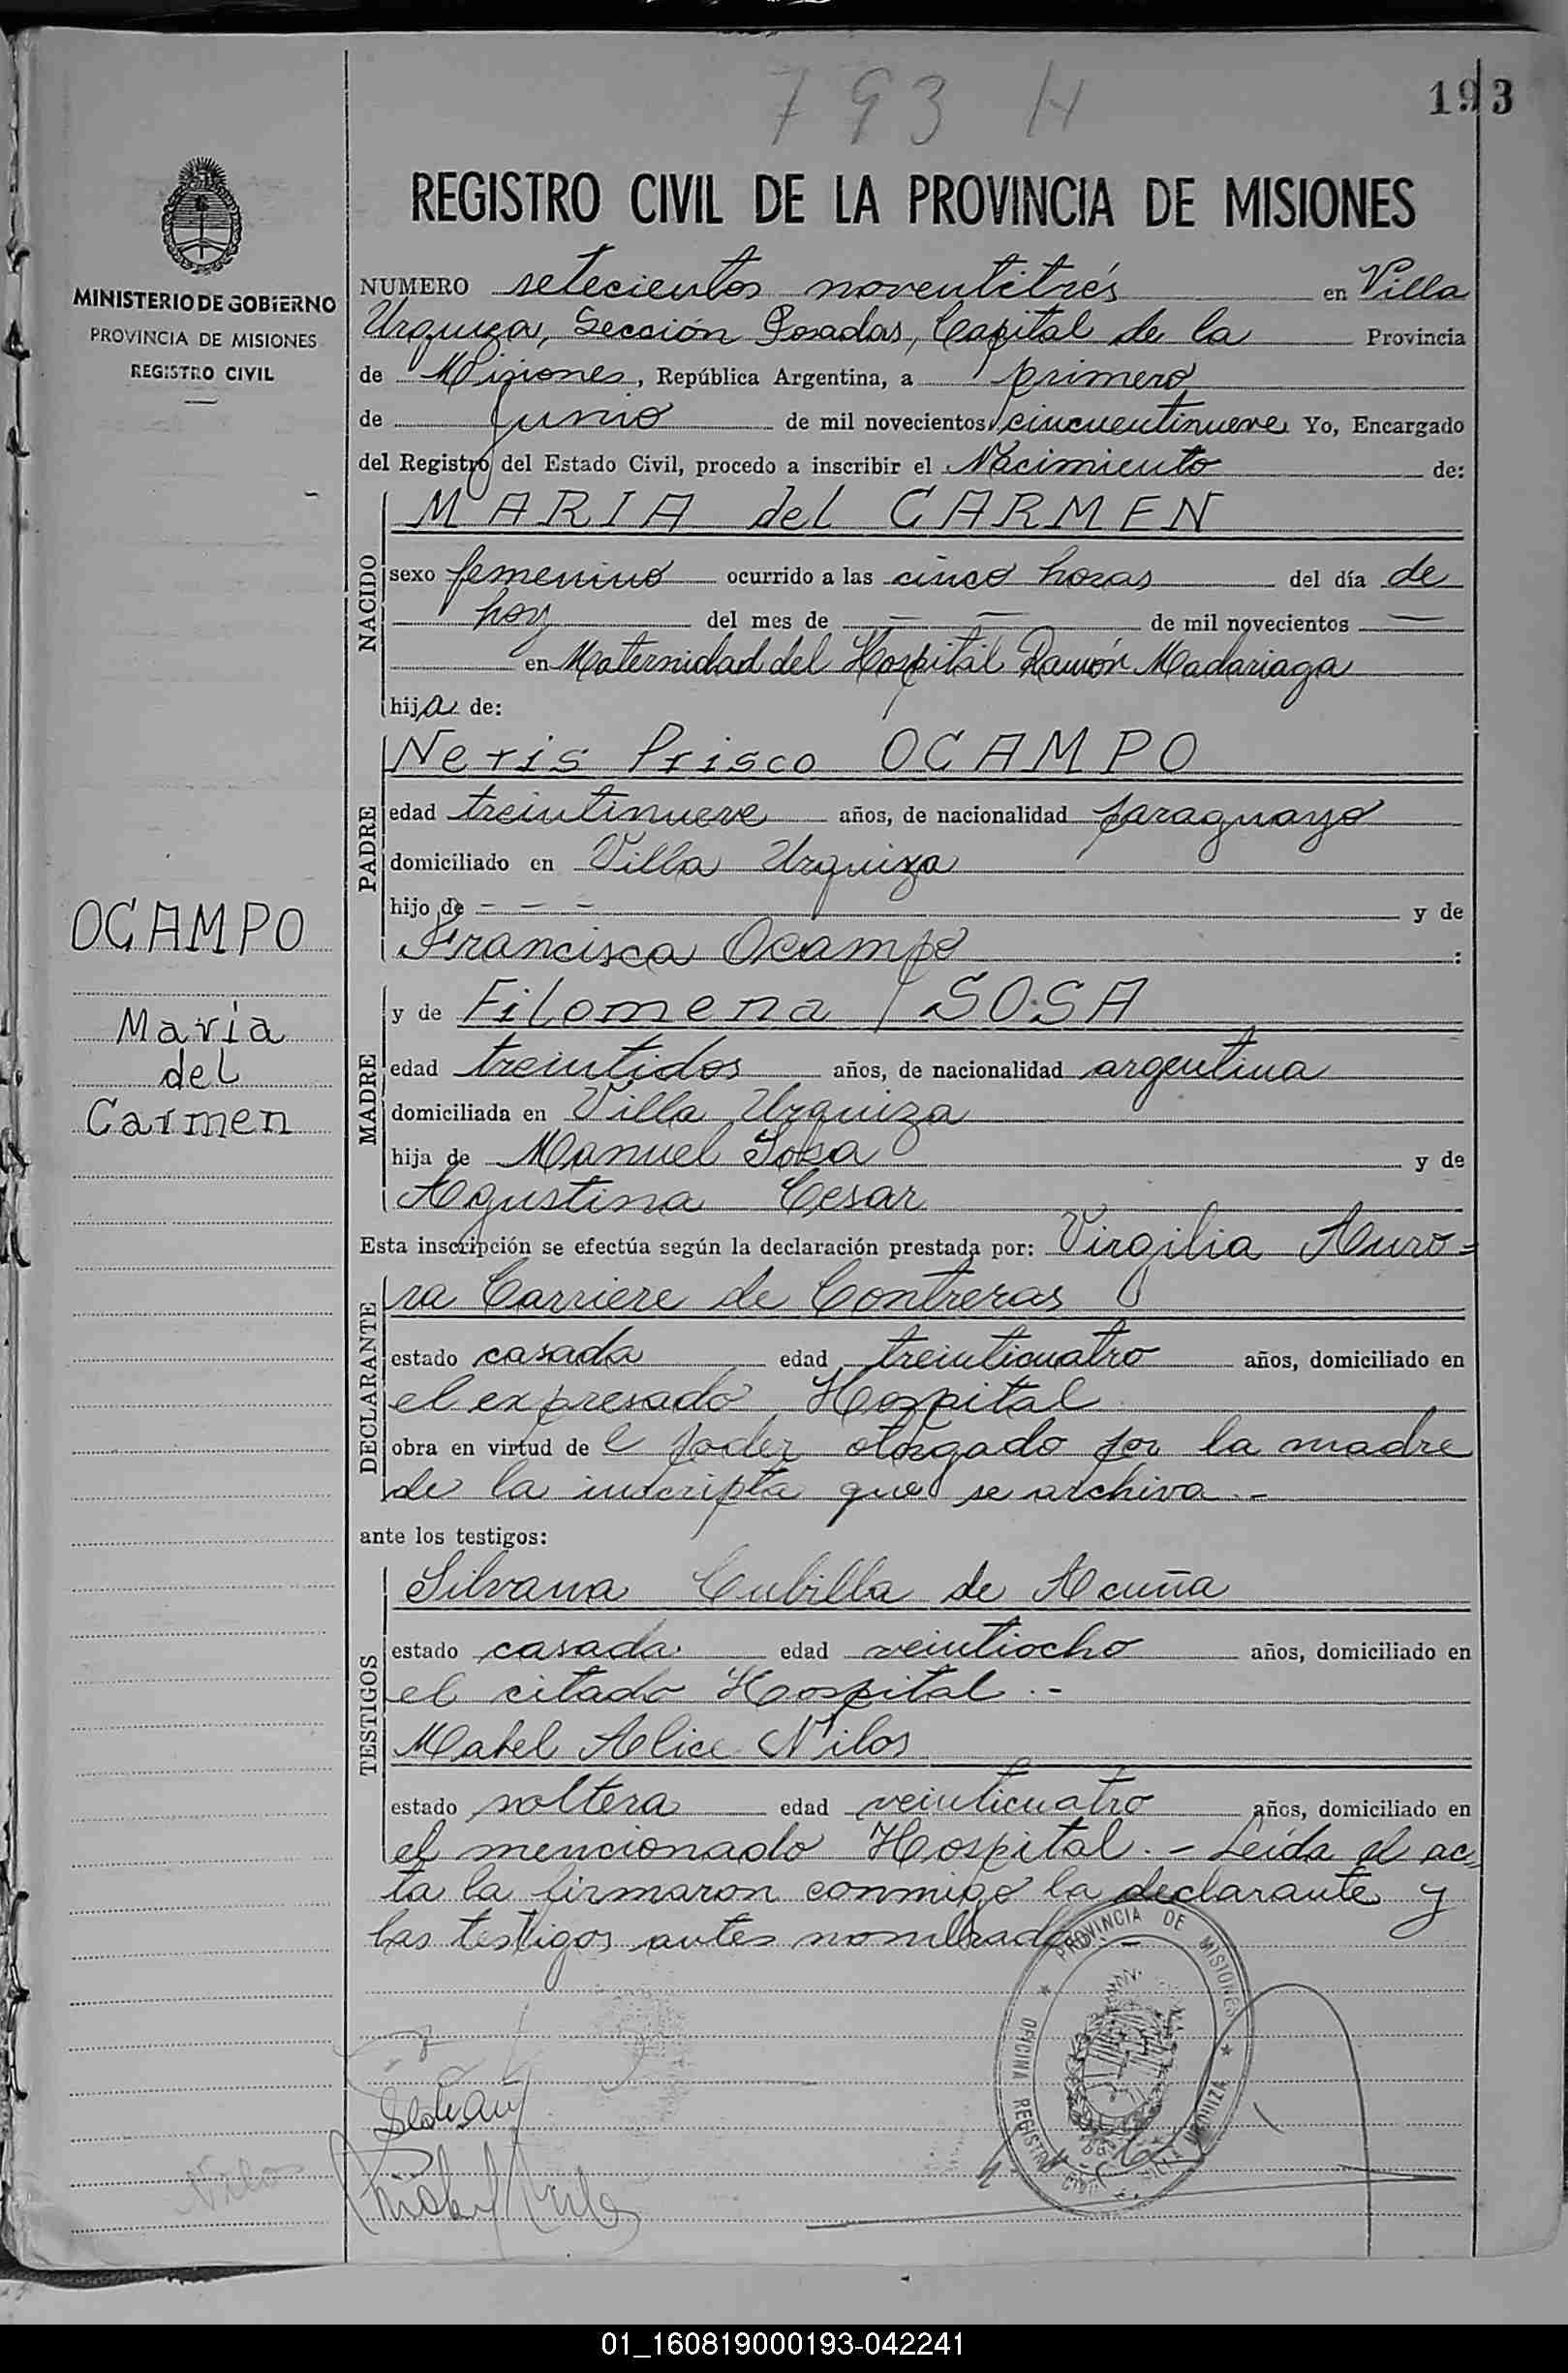 793 H
193
REGISTRO CIVIL DE LA PROVINCIA DE MISIONES
MINISTERIO DE GOBIERNO
PROVINCIA DE MISIONES
REGISTRO CIVIL
OCAMPO
María
del
Carmen
NUMERO setecientos noventitrés en Villa
Urquiza, Sección Posadas, Capital de la Provincia
de Misiones, República Argentina, a primero
de Junio de mil novecientos cincuentinueve Yo, Encargado
del Registro del Estado Civil, procedo a inscribir el Nacimiento de:
NACIDO
MARIA del CARMEN
sexo femenino ocurrido a las cinco horas del día de
hoy del mes de — — de mil novecientos —
en Maternidad del Hospital Ramón Madariaga
hija de:
PADRE
Neris Prisco OCAMPO
edad treintinueve años, de nacionalidad paraguayo
domiciliado en Villa Urquiza
hijo de - - - y de
Francisca Ocampo :
MADRE
y de Filomena SOSA
edad treintidos años, de nacionalidad argentina
domiciliada en Villa Urquiza
hija de Manuel Sosa y de
Agustina Cesar
Esta inscripción se efectúa según la declaración prestada por: Virgilia Auro=
DECLARANTE
ra Carriere de Contreras
estado casada edad treinticuatro años, domiciliado en
el expresado Hospital
obra en virtud de el poder otorgado por la madre
de la inscripta que se archiva.-
ante los testigos:
TESTIGOS
Silvana Cubilla de Acuña
estado casada edad veintiocho años, domiciliado en
el citado Hospital.-
Mabel Alice Nilos
estado soltera edad veinticuatro años, domiciliado en
el mencionado Hospital.- Leída el ac=
ta la firmaron conmigo la declarante y
las testigos antes nombradas.-
PROVINCIA DE MISIONES
OFICINA REGISTRO CIVIL VILLA URQUIZA
01_160819000193-042241